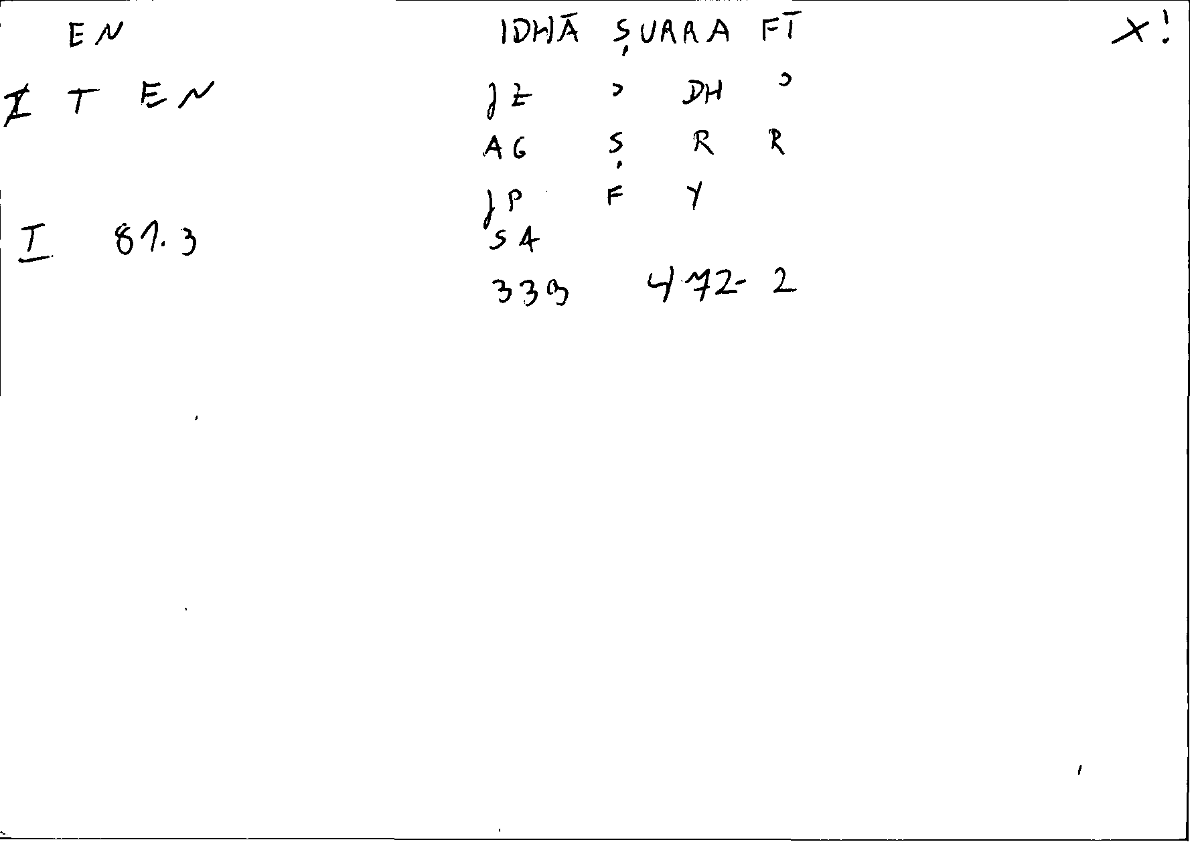 EN IDHĀ ṢURRA FĪ X!
I T EN JE ʾ DH ʾ
AG Ṣ R R
JP F Y
I 81.3 SA
339 472-2